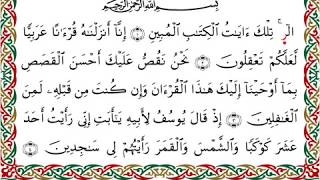 بِسْمِ اللَّهِ الرَّحْمَٰنِ الرَّحِيمِ
الٓر ۚ تِلْكَ ءَايَٰتُ ٱلْكِتَٰبِ ٱلْمُبِينِ ١ إِنَّآ أَنزَلْنَٰهُ قُرْءَٰنًا عَرَبِيًّا
لَّعَلَّكُمْ تَعْقِلُونَ ٢ نَحْنُ نَقُصُّ عَلَيْكَ أَحْسَنَ ٱلْقَصَصِ
بِمَآ أَوْحَيْنَآ إِلَيْكَ هَٰذَا ٱلْقُرْءَانَ وَإِن كُنتَ مِن قَبْلِهِۦ لَمِنَ
ٱلْغَٰفِلِينَ ٣ إِذْ قَالَ يُوسُفُ لِأَبِيهِ يَٰٓأَبَتِ إِنِّى رَأَيْتُ أَحَدَ
عَشَرَ كَوْكَبًا وَٱلشَّمْسَ وَٱلْقَمَرَ رَأَيْتُهُمْ لِى سَٰجِدِينَ ٤